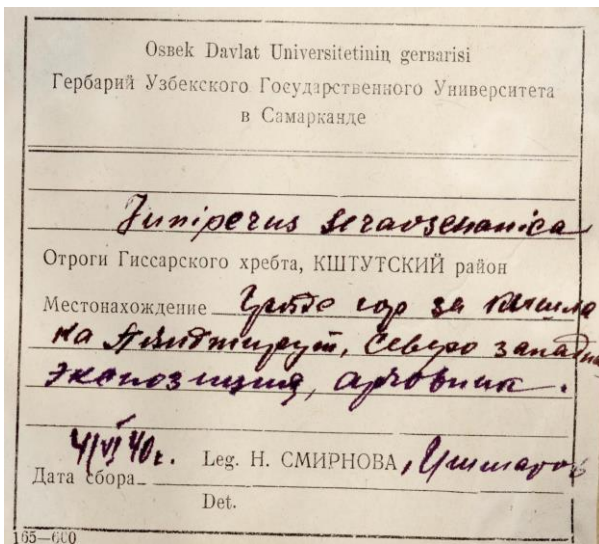 Osbek Davlat Universitetinin gerbarisi
Гербарий Узбекского Государственного Университета
в Самарканде
Juniperus seravschanica
Отроги Гиссарского хребта, КШТУТСКИЙ район
Местонахождение гор за кишла
ка Северо западн
экспозиция, арчовник.
4/VI 40г. Leg. Н. СМИРНОВА,
Дата сбора
Det.
165—600